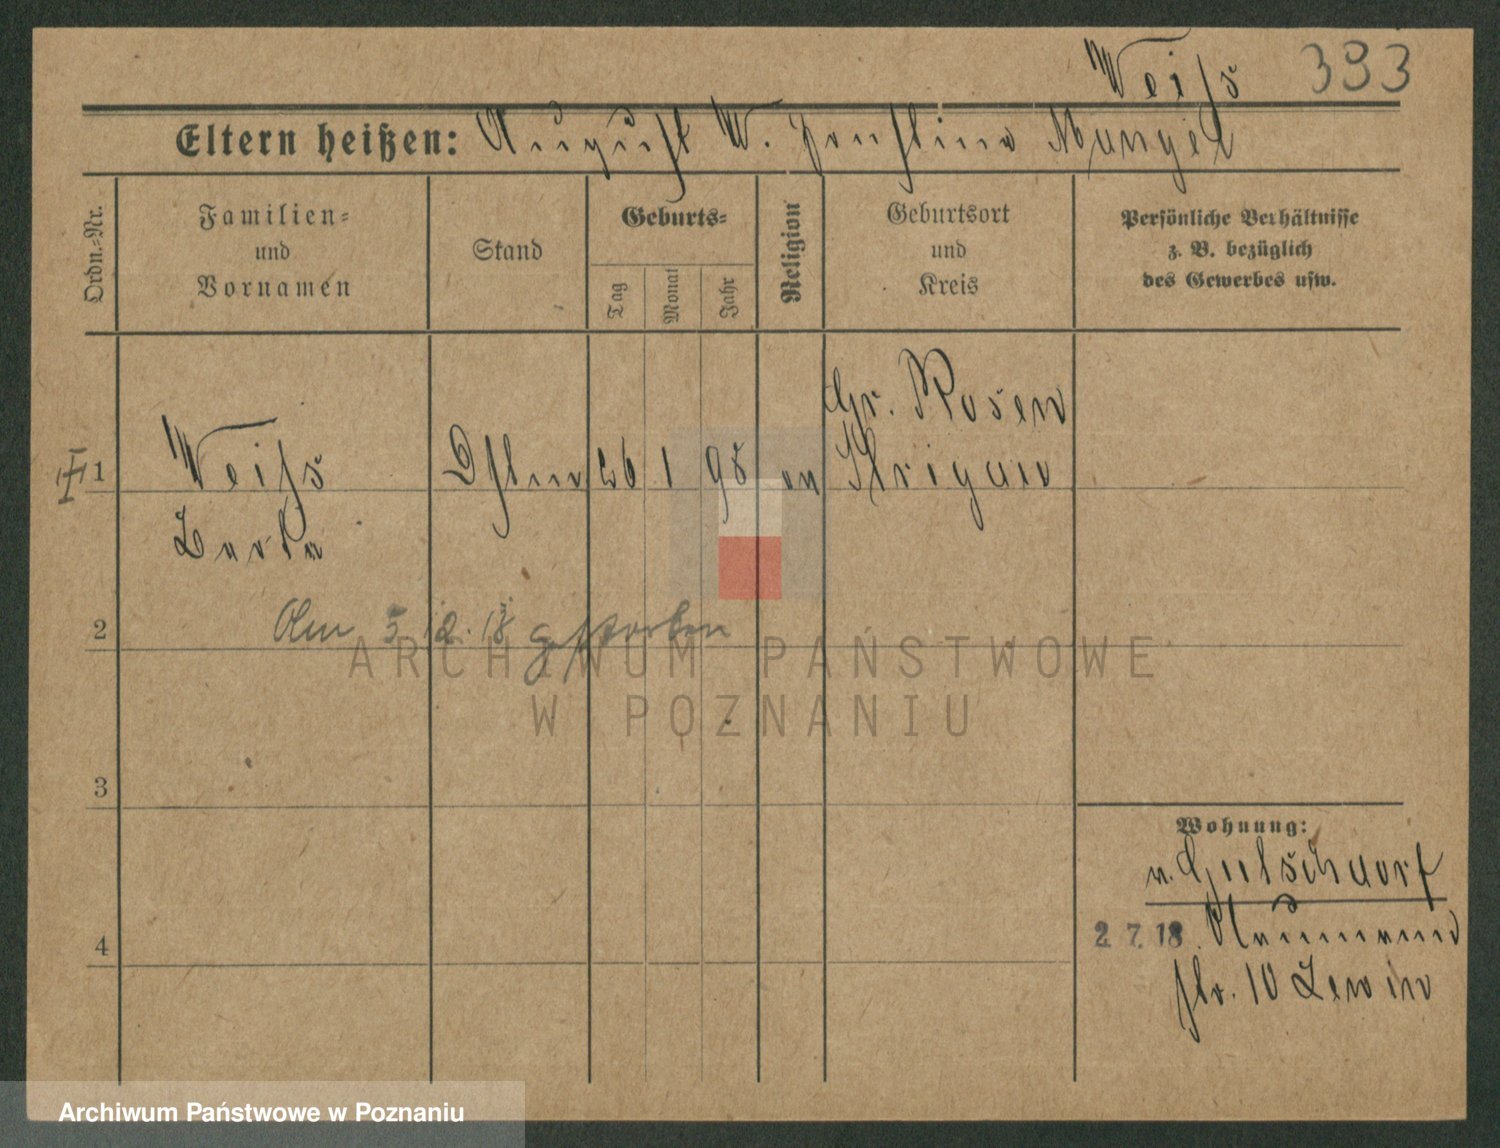 Weiſs 393
Eltern heißen: August W. Mengel
Ordn.-Nr.
Familien-
und
Vornamen
Stand
Geburts-
Tag
Monat
Jahr
Religion
Geburtsort
und
Kreis
Persönliche Verhältnisse
z. B. bezüglich
des Gewerbes usw.
Gr. Rosen
1 Weiſs 26 1 98 ev Strigau
2
Am 5 12. 18 gestorben
3
4
Wohnung:
v. Gutschdorf
2. 7. 18. Naumann
str. 10 Lewin
ARCHIWUM PAŃSTWOWE
W POZNANIU
Archiwum Państwowe w Poznaniu